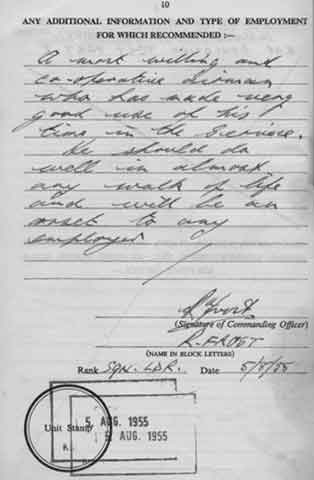 10
ANY ADDITIONAL INFORMATION AND TYPE OF EMPLOYMENT
FOR WHICH RECOMMENDED :—
A most willing and
co-operative airman
who has made very
good use of his
time in the Service.
He should do
well in almost
any walk of life
and will be an
asset to any
employer
R Frost
(Signature of Commanding Officer)
R. FROST
(NAME IN BLOCK LETTERS)
Rank SQN. LDR. Date 5/8/55
5 AUG. 1955
Unit Stamp
5 AUG. 1955